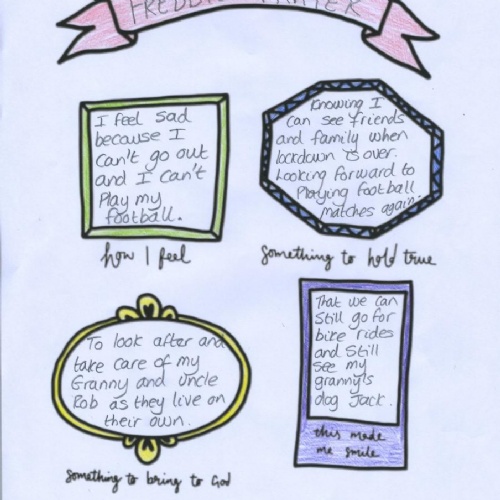 PRAYER
I feel sad
because I
can't go out
and I can't
Play my
football.
how I feel
Knowing I
can see friends
and family when
lockdown is over.
Looking forward to
Playing football
matches again.
something to hold true
To look after and
take care of my
Granny and Uncle
Rob as they live on
their own.
something to bring to God
That we can
Still go for
bike rides
and Still
see my
granny's
dog Jack.
this made
me smile